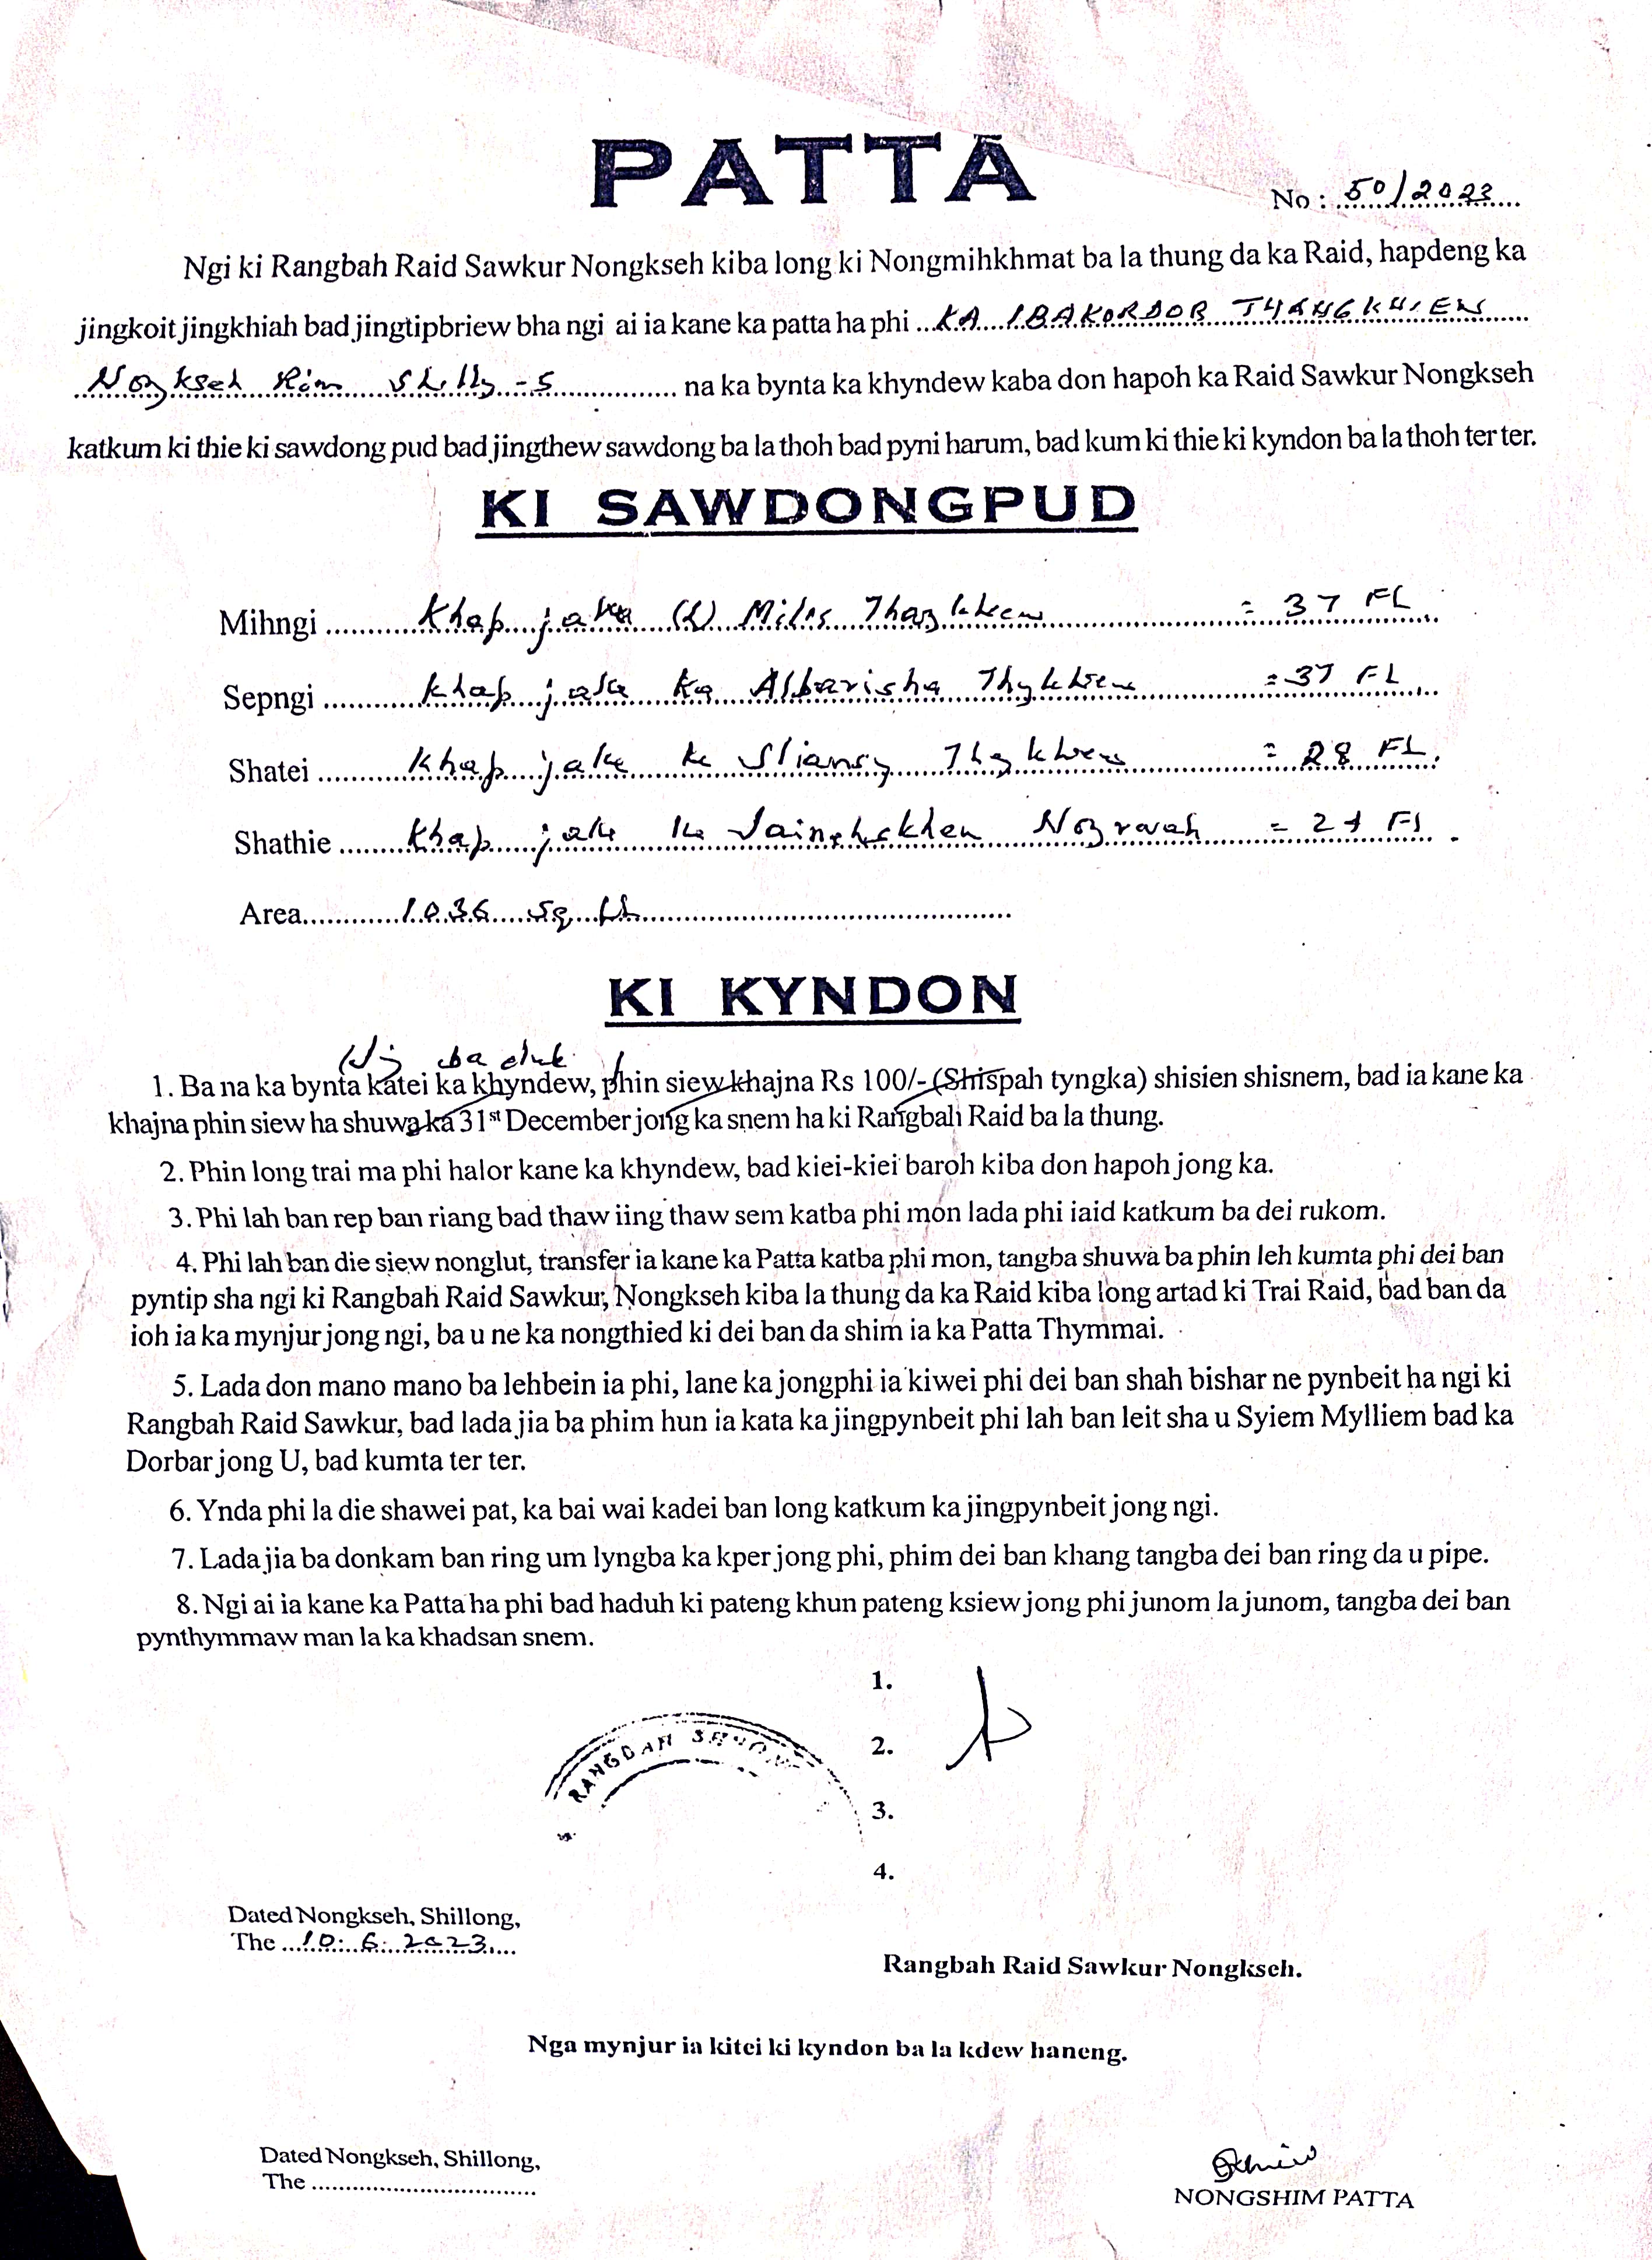 PATTA
No : 50/2023
Ngi ki Rangbah Raid Sawkur Nongkseh kiba long ki Nongmihkhmat ba la thung da ka Raid, hapdeng ka
jingkoit jingkhiah bad jingtipbriew bha ngi ai ia kane ka patta ha phi KA IBAKORDOR THANGKHIEW
Nongkseh Rim -5 na ka bynta ka khyndew kaba don hapoh ka Raid Sawkur Nongkseh
katkum ki thie ki sawdong pud bad jingthew sawdong ba la thoh bad pyni harum, bad kum ki thie ki kyndon ba la thoh ter ter.
KI SAWDONGPUD
Mihngi Khap jaka (L) = 37 FL
Sepngi Khap jaka ka Albarisha = 37 FL
Shatei Khap jaka = 28 FL
Shathie Khap jaka
Area 1036 sq ft
KI KYNDON
1. Ba na ka bynta katei ka khyndew, phin siew khajna Rs 100/- (Shispah tyngka) shisien shisnem, bad ia kane ka
khajna phin siew ha shuwa ka 31st December jong ka snem ha ki Rangbah Raid ba la thung.
2. Phin long trai ma phi halor kane ka khyndew, bad kiei-kiei baroh kiba don hapoh jong ka.
3. Phi lah ban rep ban riang bad thaw iing thaw sem katba phi mon lada phi iaid katkum ba dei rukom.
4. Phi lah ban die siew nonglut, transfer ia kane ka Patta katba phi mon, tangba shuwa ba phin leh kumta phi dei ban
pyntip sha ngi ki Rangbah Raid Sawkur, Nongkseh kiba la thung da ka Raid kiba long artad ki Trai Raid, bad ban da
ioh ia ka mynjur jong ngi, ba u ne ka nongthied ki dei ban da shim ia ka Patta Thymmai.
5. Lada don mano mano ba lehbein ia phi, lane ka jongphi ia kiwei phi dei ban shah bishar ne pynbeit ha ngi ki
Rangbah Raid Sawkur, bad lada jia ba phim hun ia kata ka jingpynbeit phi lah ban leit sha u Syiem Mylliem bad ka
Dorbar jong U, bad kumta ter ter.
6. Ynda phi la die shawei pat, ka bai wai kadei ban long katkum ka jingpynbeit jong ngi.
7. Lada jia ba donkam ban ring um lyngba ka kper jong phi, phim dei ban khang tangba dei ban ring da u pipe.
8. Ngi ai ia kane ka Patta ha phi bad haduh ki pateng khun pateng ksiew jong phi junom la junom, tangba dei ban
pynthymmaw man la ka khadsan snem.
1.
2.
3.
4.
Dated Nongkseh, Shillong,
The 10. 6. 2023
Rangbah Raid Sawkur Nongkseh.
Nga mynjur ia kitei ki kyndon ba la kdew haneng.
Dated Nongkseh, Shillong,
The
NONGSHIM PATTA